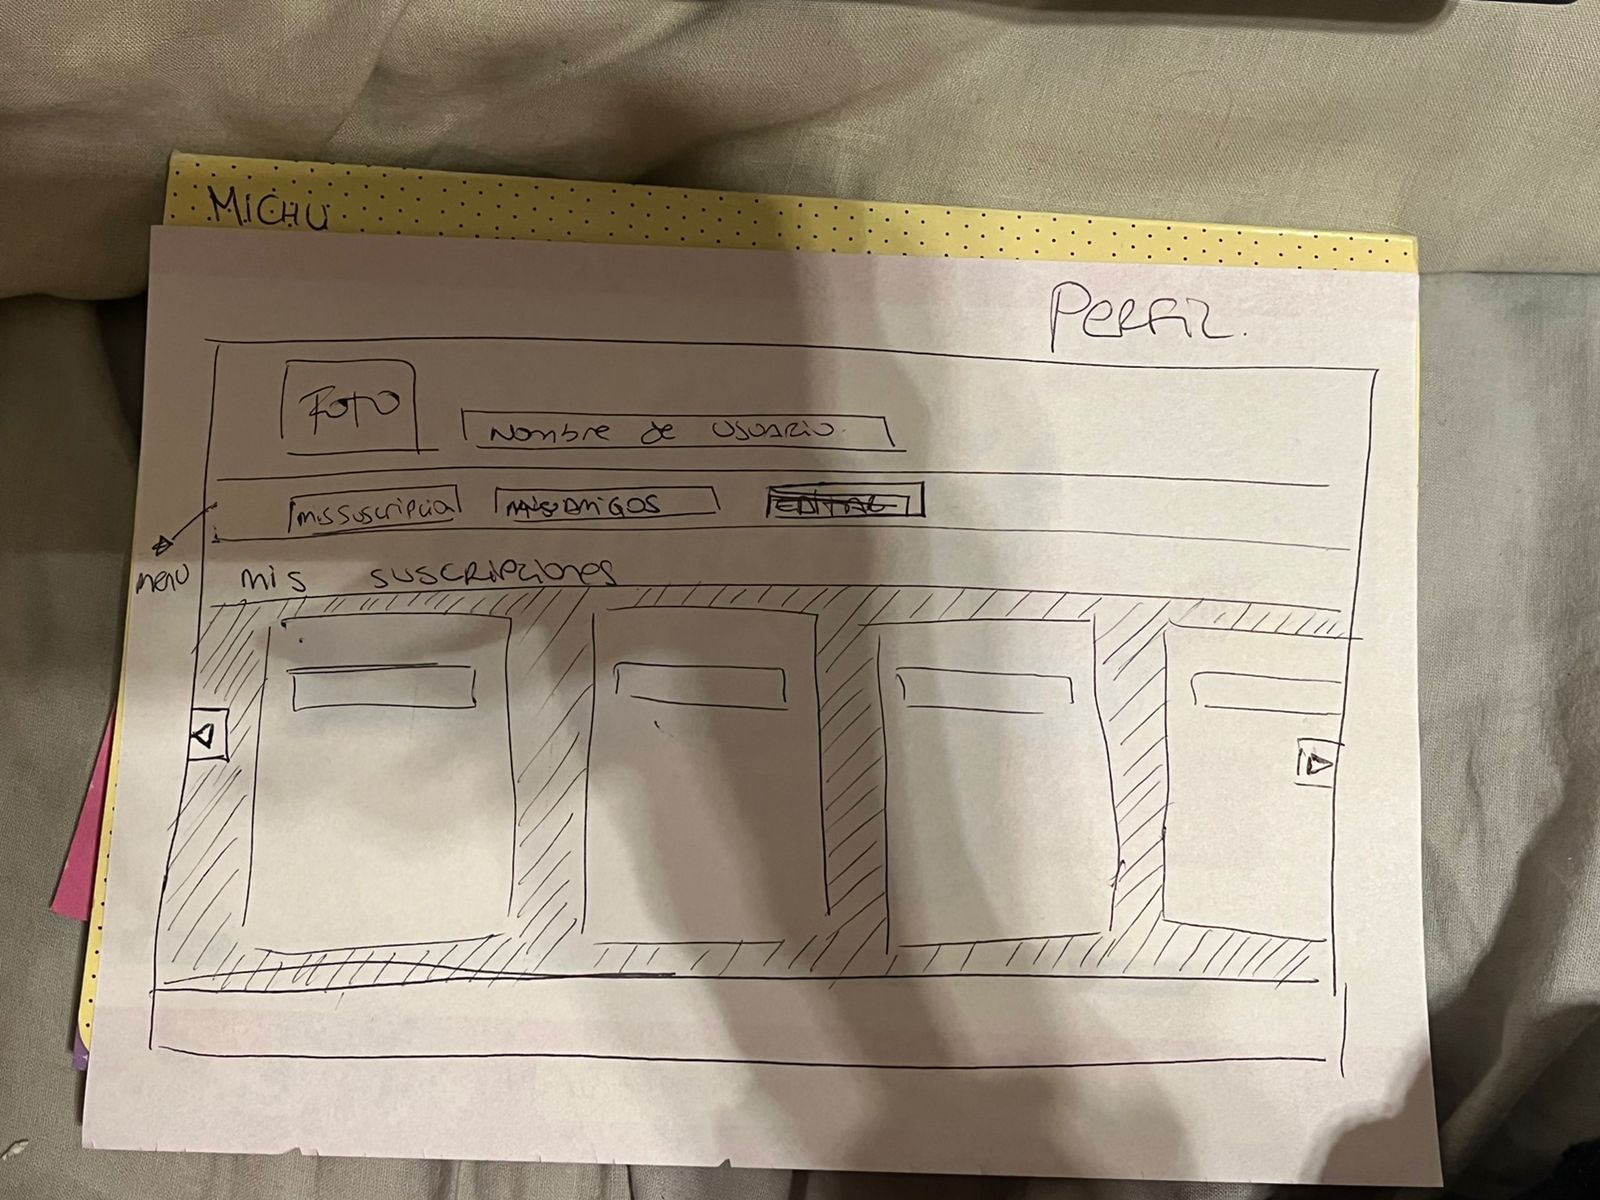 MICHU
Perfil.
Foto
Nombre de usuario
mis suscripcio
amigos
menu
mis suscripciones